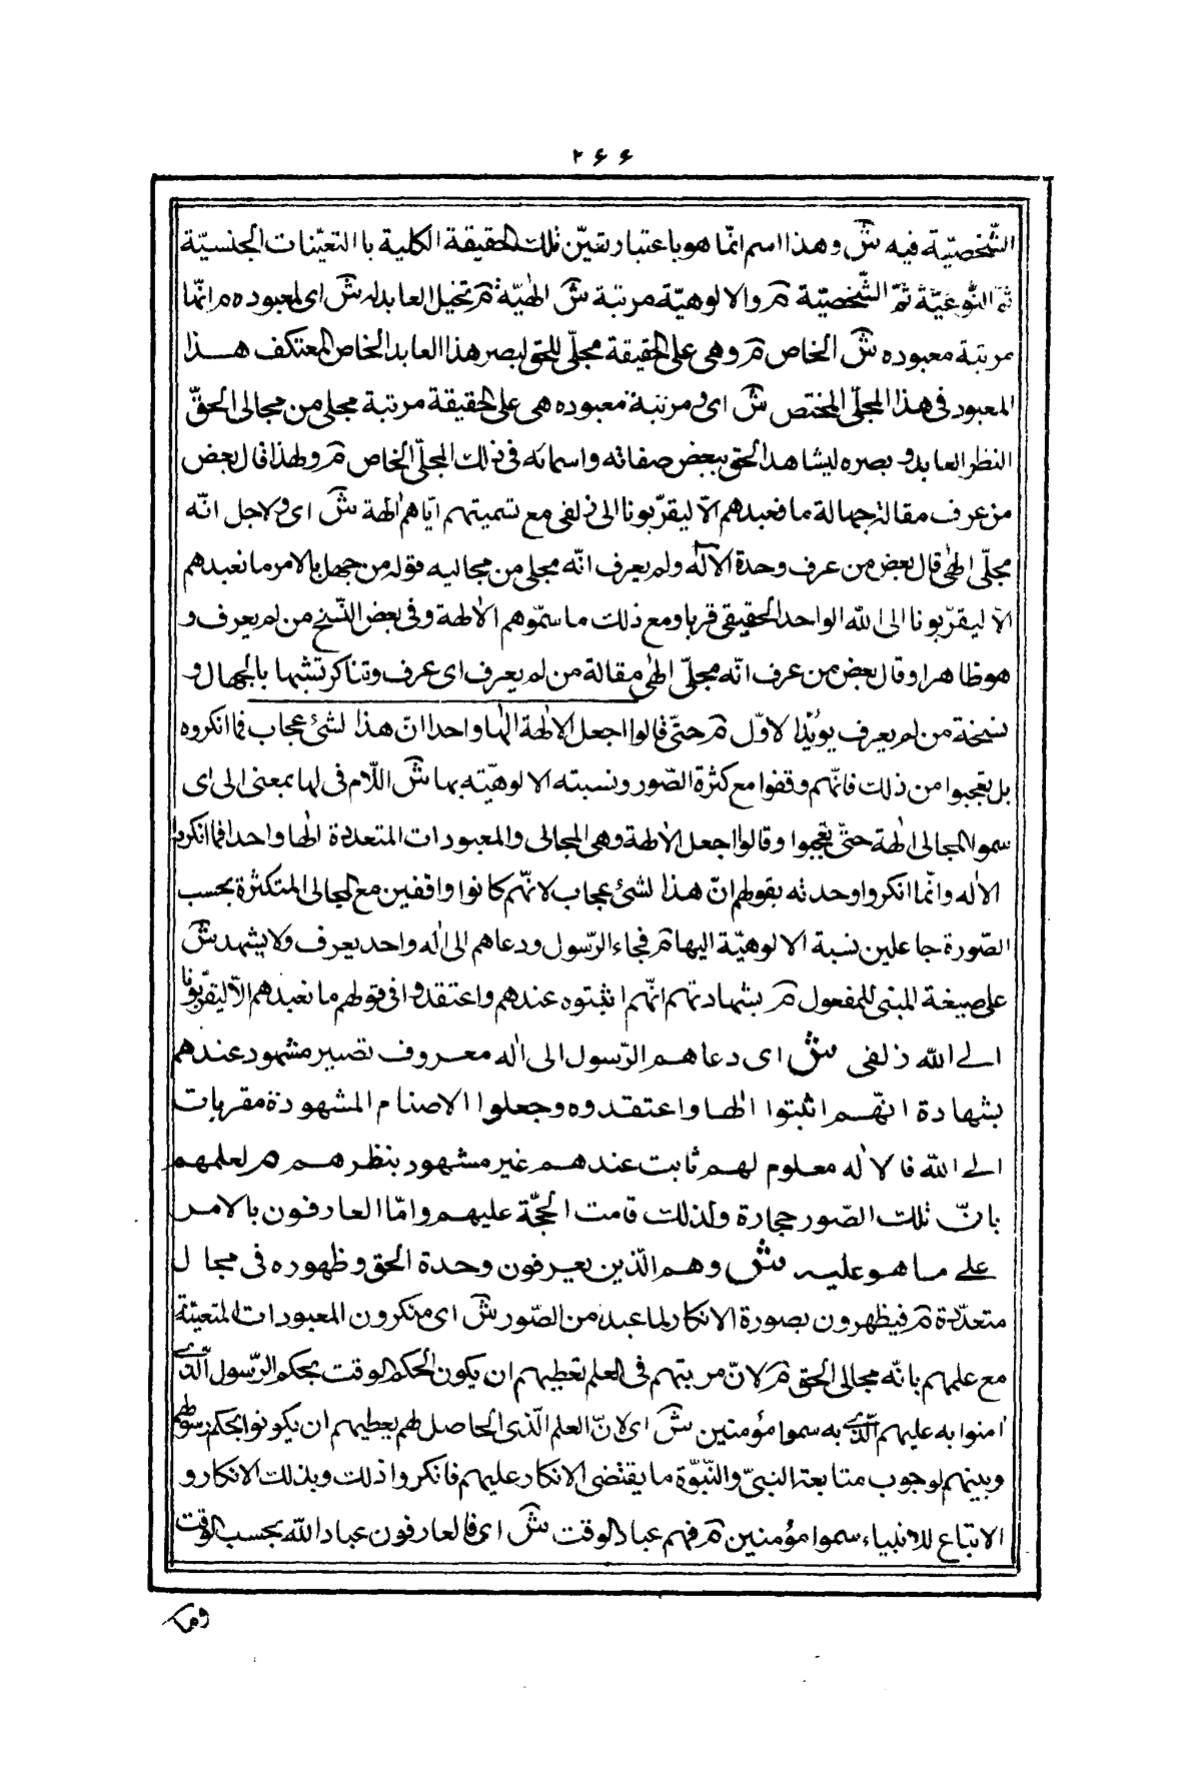 ٢٦٦
الشّخصيّة فيه ش وهذا اسم انّما هو باعتبار تعيّن تلك الحقيقة الكلية با التعيّنات الجنسيّة
ثمّ النّوعيّة ثمّ الشّخصيّة م والالوهيّة مرتبة ش الهٰيّة م تخيل العابد له ش اى لمعبوده م انّما
مرتبة معبوده ش الخاص م وهى على الحقيقة مجلّى للحق لبصر هذا العابد الخاص المعتكف هذا
المعبود فى هذا المجلّى المختص ش اى و مرتبة معبوده هى على الحقيقة مرتبة مجلى من مجالى الحقّ
النظر العابد و بصره ليشاهد الحق ببعض صفاته واسمائه فى ذلك المجلّى الخاص م ولهذا قال بعض
من عرف مقالة جهالة ما نعبدهم الّا ليقرّبونا الى زلفى مع تسميتهم ايّاهم اٰلهة ش اى و لاجل انّه
مجلّى الهٰى قال بعض من عرف وحدة الاله ولم يعرف انّه مجلى من مجاليه قوله من جهل بالامر ما نعبدهم
الّا ليقرّبونا الى اللّه الواحد الحقيقى قربا ومع ذلك ما سمّوهم الاٰلهة وفى بعض النّسخ من لم يعرف و
هو ظاهر او قال بعض من عرف انّه مجلّى الهٰى مقالة من لم يعرف اى عرف وتناكر تشبّها بالجهال و
نسخة من لم يعرف يؤيّد الاوّل م حتّى قالوا اجعل الاٰلهة الٰها واحدا انّ هذا لشئ عجاب فما انكروه
بل تعجبوا من ذلك فانّهم وقفوا مع كثرة الصّور ونسبته الالوهيّته بها ش اللّام فى لها بمعنى الى اى
سموا المجالى الٰهة حتّى تعجبوا وقالوا اجعل الاٰلهة وهى المجالى والمعبودات المتعددة الٰها واحدا فما انكروا
الاٰله وانّما انكروا وحدته بقولهم انّ هذا لشئ عجاب لانّهم كانوا واقفين مع المجالى المتكثرة بحسب
الصّورة جاعلين نسبة الالوهيّة اليها م فجاء الرّسول ودعاهم الى اٰله واحد يعرف ولا يشهد ش
على صيغة المبنى للمفعول م بشهادتهم انّهم اثبتوه عندهم واعتقدوا فى قولهم ما نعبدهم الّا ليقرّبونا
الى اللّه زلفى ش اى دعاهم الرّسول الى اٰله معروف تصير مشهود عندهم
بشهادة انّهم اثبتوا الٰها واعتقدوه وجعلوا الاصنام المشهودة مقربات
الى اللّه فالاٰله معلوم لهم ثابت عندهم غير مشهود بنظرهم م لعلمهم
بانّ تلك الصّور حجارة ولذلك قامت الحجّة عليهم وامّا العارفون بالامر
على ما هو عليه ش وهم الّذين يعرفون وحدة الحق وظهوره فى مجال
متعدّدة م فيظهرون بصورة الانكار لما عبد من الصّور ش اى منكرون المعبودات المتعيّنة
مع علمهم بانّه مجالى الحق م لانّ مرتبتهم فى العلم تعطيهم ان يكون الحكم الوقت بحكم الرّسول الّذى
اٰمنوا به عليهم الّذى به سموا مؤمنين ش اى لانّ العلم الّذى الحاصل لهم يعطيهم ان يكونوا بحكم رسولهم
وبينهم لوجوب متابعة النبىّ والنّبوّة ما يقتضى الانكار عليهم فانكروا ذلك وبذلك الانكار و
الاتباع للانبياء سموا مؤمنين م فهم عباد الوقت ش اى فالعارفون عباد اللّه بحسب الوقت
وما